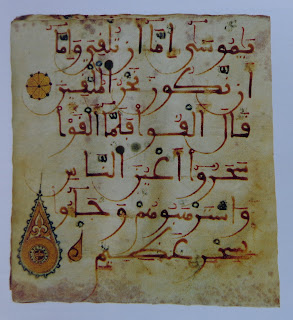 يٰموسى إما أن تلقي وإما
أن نكون نحن الملقين
قال ألقوا فلما ألقوا
سحروا أعين الناس
واسترهبوهم وجاءو
بسحر عظيم